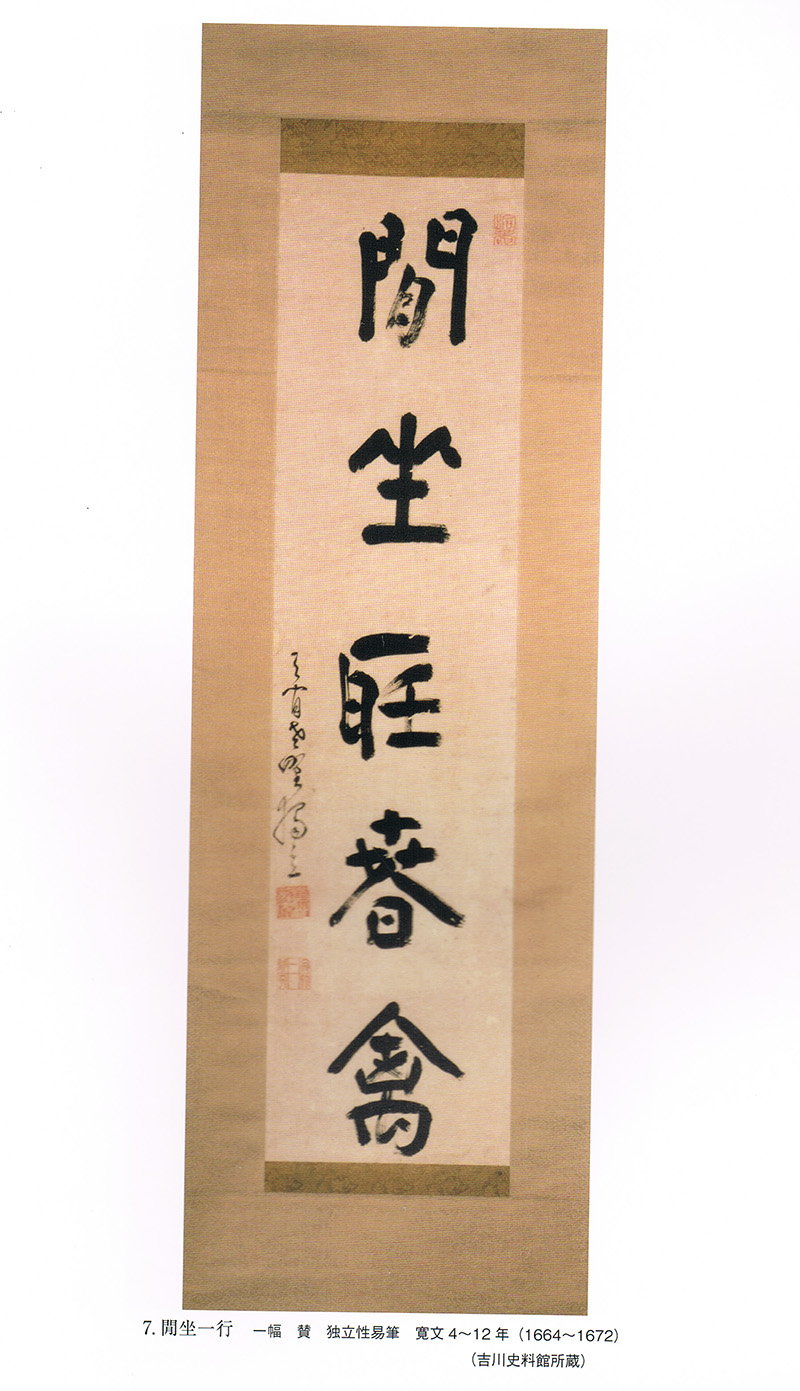 閒坐聽春禽
獨立
7. 閒坐一行 一幅 賛 独立性易筆 寛文4～12年（1664～1672）
（吉川史料館所蔵）